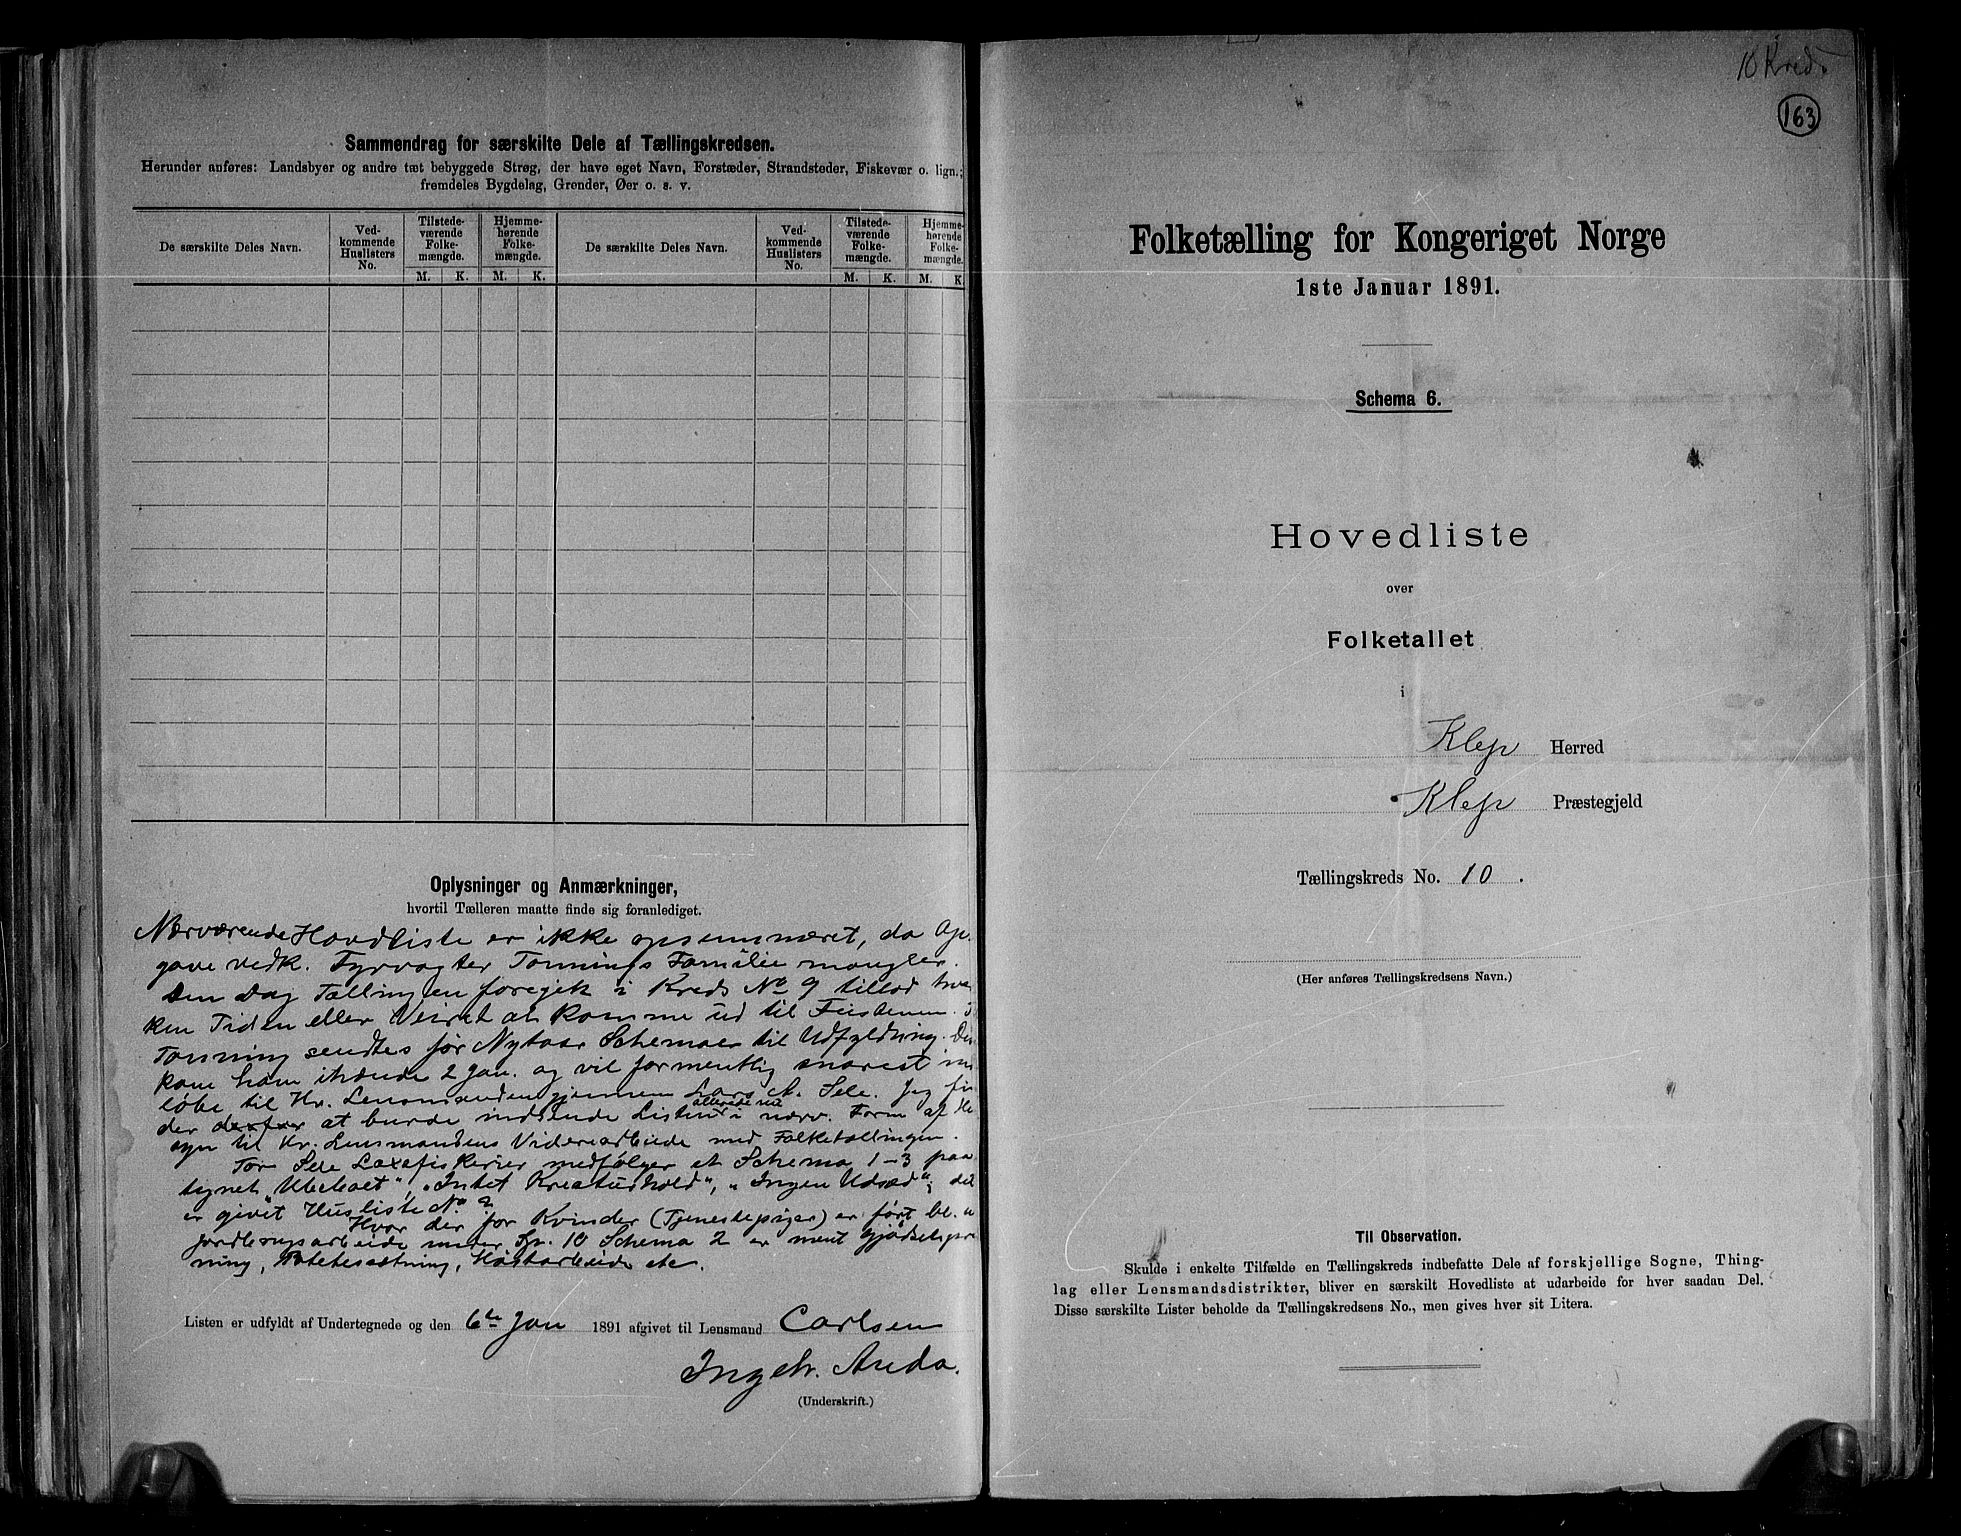 Sammendrag for særskilte Dele af Tællingskredsen.
Herunder anføres: Landsbyer og andre tæt bebyggede Strøg, der have eget Navn, Forstæder, Strandsteder, Fiskevær o. lign.;
fremdeles Bygdelag, Grender, Øer o. s. v.
De særskilte Deles Navn.
Ved-
kommende
Huslisters
No.
Tilstede-
værende
Folke-
mængde.
Hjemme-
hørende
Folke-
mængde.
De særskilte Deles Navn.
Ved-
kommende
Huslisters
No.
Tilstede-
værende
Folke-
mængde.
Hjemme-
hørende
Folke-
mængde.
M. K. M. K. M. K. M. K.
Oplysninger og Anmærkninger,
hvortil Tælleren maatte finde sig foranlediget.
Nærværende Hovedliste er ikke opsummeret, da Op-
gave vedk. Fyrvogter Tønnings Familie mangler.
Den Dag Tællingen foregik i Kreds No 9 tillod hver-
ken Tiden eller Veiret at komme ud til Feistenen.
Tønning sendtes før Nytaar Schemaer til Udfyldning.
kom ham ihænde 2 Jan. og vil formentlig snarest
løbe til Hr. Lensmanden gjennem Lars A. Sele. Jeg
der at burde indsende Listen allerede nu i nærv. Form af
syn til Hr. Lensmandens Viderearbeide med Folketællingen.
For Sele Laxefiskerier medfølger et Schema 1-3 paa-
tegnet "Ubeboet", "Intet Kreaturhold", "Ingen Udsæd",
er givet Husliste No
Hvor der for Kvinder (Tjenestepiger) er ført
jordbrugsarbeide under Sp. 10 Schema 2 er ment Gjødselspre
ning, Potetesætning, Høstarbeide etc.
Listen er udfyldt af Undertegnede og den 6te Jan 1891 afgivet til Lensmand Carlsen
Ingebr. Anda.
(Underskrift.)
10 Kreds
163
Folketælling for Kongeriget Norge
1ste Januar 1891.
Schema 6.
Hovedliste
over
Folketallet
i
Klep Herred
Klep Præstegjeld
Tællingskreds No. 10.
(Her anføres Tællingskredsens Navn.)
Til Observation.
Skulde i enkelte Tilfælde en Tællingskreds indbefatte Dele af forskjellige Sogne, Thing-
lag eller Lensmandsdistrikter, bliver en særskilt Hovedliste at udarbeide for hver saadan Del.
Disse særskilte Lister beholde da Tællingskredsens No., men gives hver sit Litera.